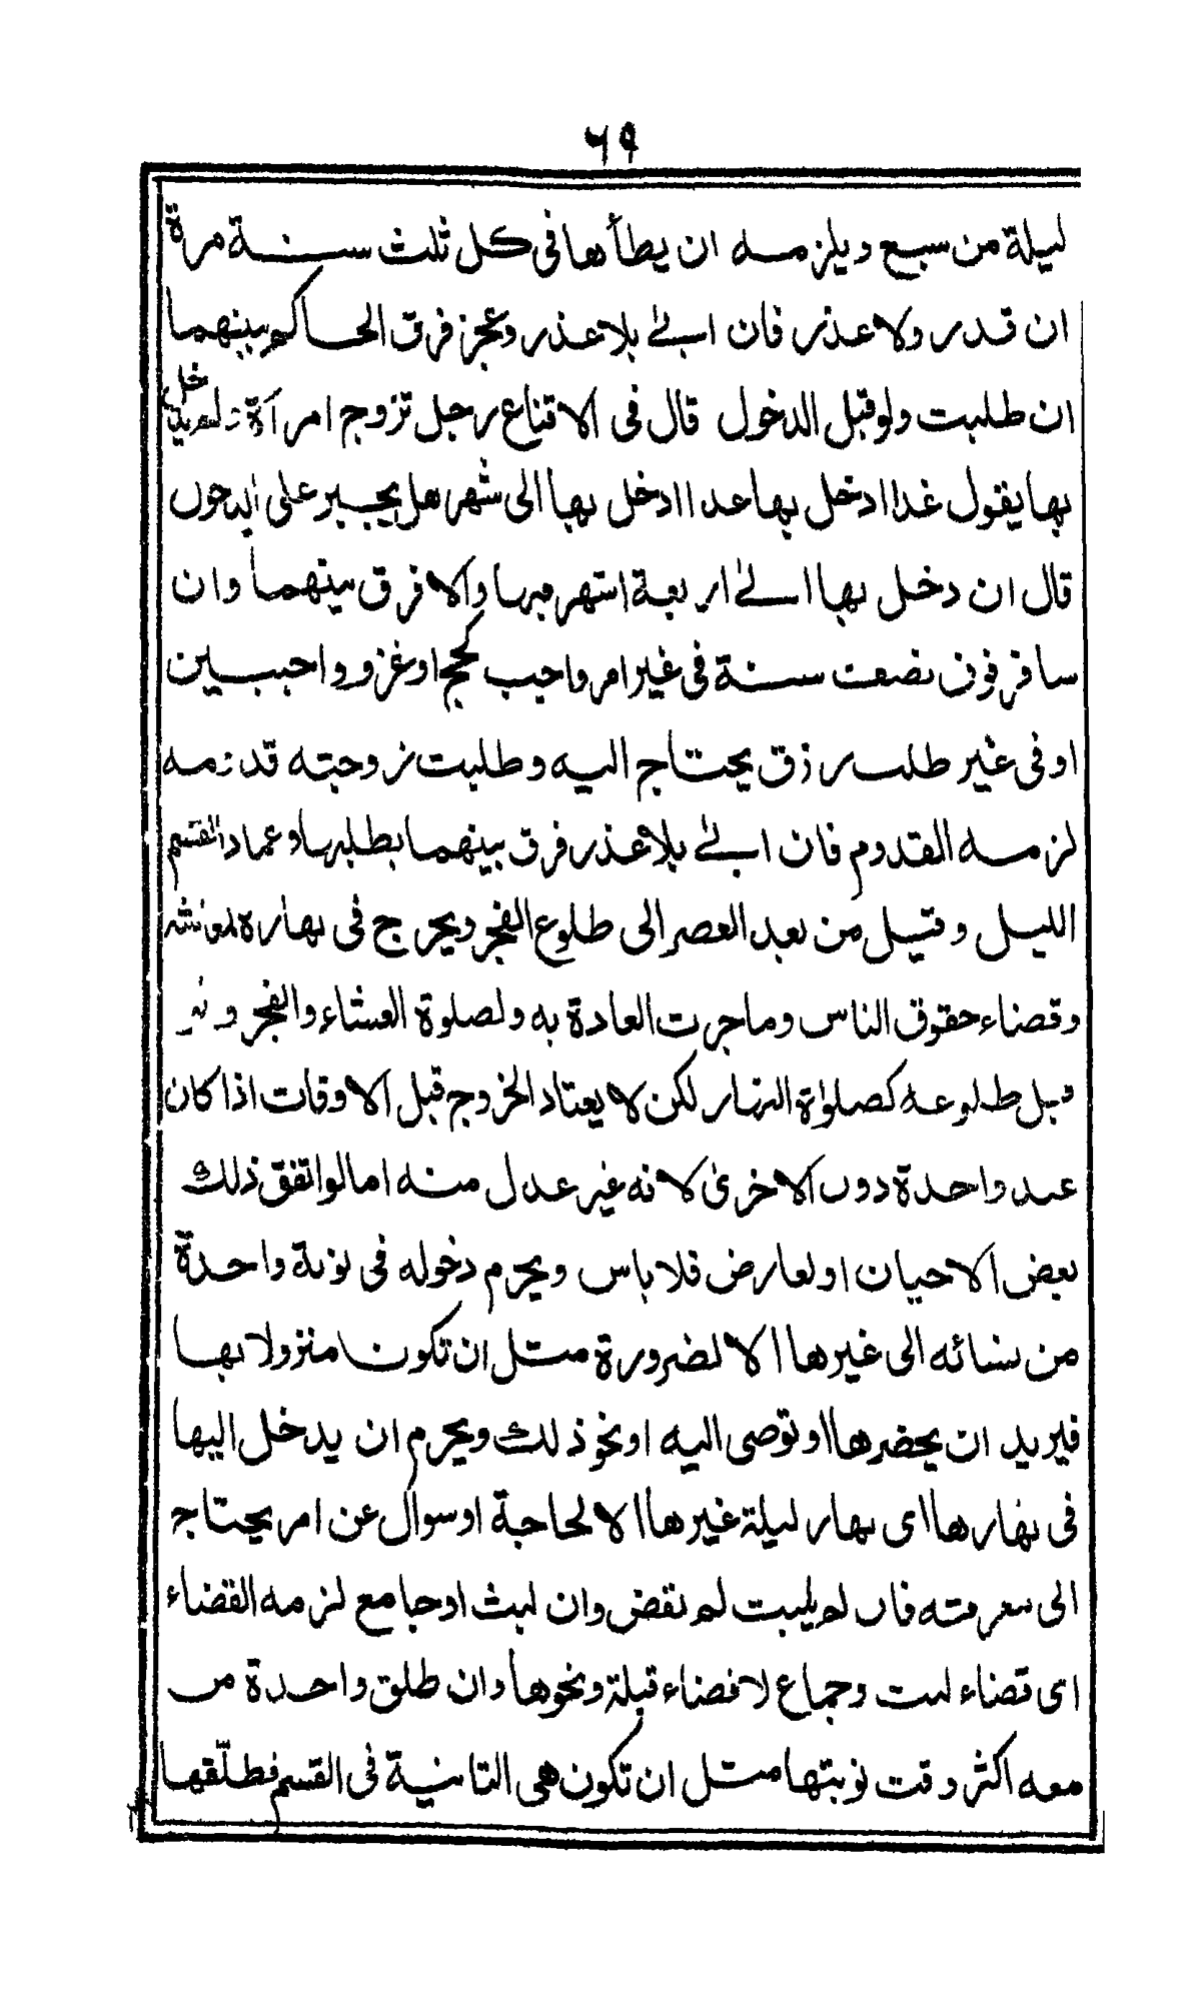 ٦٩
ليلة من سبع ويلزمه ان يطأها فى كل ثلث سنة مرة
ان قدر ولا عذر فان ابى بلا عذر وعجز فرق الحاكم بينهما
ان طلبت ولو قبل الدخول قال فى الاقناع رجل تزوج امرأة ولم يدخل
بها يقول غدا ادخل بها غدا ادخل بها الى شهر هل يجبر على الدخول
قال ان دخل بها الى اربعة اشهر منها والا فرق بينهما وان
سافر فوق نصف سنة فى غير امر واجب كحج او غزو واجبين
او فى غير طلب رزق يحتاج اليه وطلبت زوجته قدومه
لزمه القدوم فان ابى بلا عذر فرق بينهما بطلبها وعماد القسم
الليل وقيل من بعد العصر الى طلوع الفجر ويخرج فى نهاره لمعاشه
وقضاء حقوق الناس وما جرت العادة به ولصلوة العشاء والفجر و
قبل طلوعه كصلواة النهار لكن لا يعتاد الخروج قبل الاوقات اذا كان
عند واحدة دون الاخرى لانه غير عدل منه اما لو اتفق ذلك
بعض الاحيان او لعارض فلا باس ويحرم دخوله فى نوبة واحدة
من نسائه الى غيرها الا لضرورة مثل ان تكون منزولا بها
فيريد ان يحضرها او توصى اليه او نحو ذلك ويحرم ان يدخل اليها
فى نهارها اى نهار ليلة غيرها الا لحاجة او سوال عن امر يحتاج
الى معرفته فان لم يلبث لم يقض وان لبث او جامع لزمه القضاء
اى قضاء لبث وجماع لا قضاء قبلة ونحوها وان طلق واحدة من
معه اكثر وقت نوبتها مثل ان تكون هى الثانية فى القسم فطلّقها